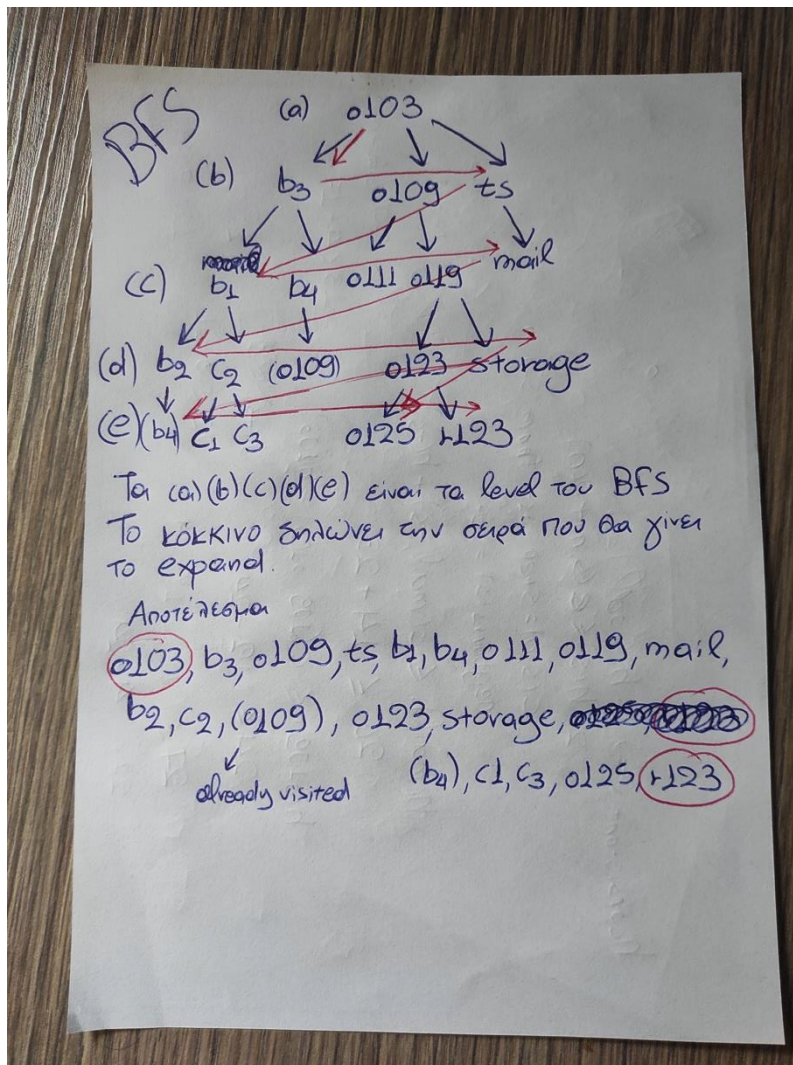 BFS
(a) o103
(b) b3 o109 ts
(c) b1 b4 o111 o119 mail
(d) b2 c2 (o109) o123 storage
(e) (b4) c1 c3 o125 r123
Τα (a)(b)(c)(d)(e) είναι τα level του BFS
Το κόκκινο δηλώνει την σειρά που θα γίνει
το expand.
Αποτέλεσμα
o103, b3, o109, ts, b1, b4, o111, o119, mail,
b2, c2, (o109), o123, storage,
already visited (b4), c1, c3, o125, r123